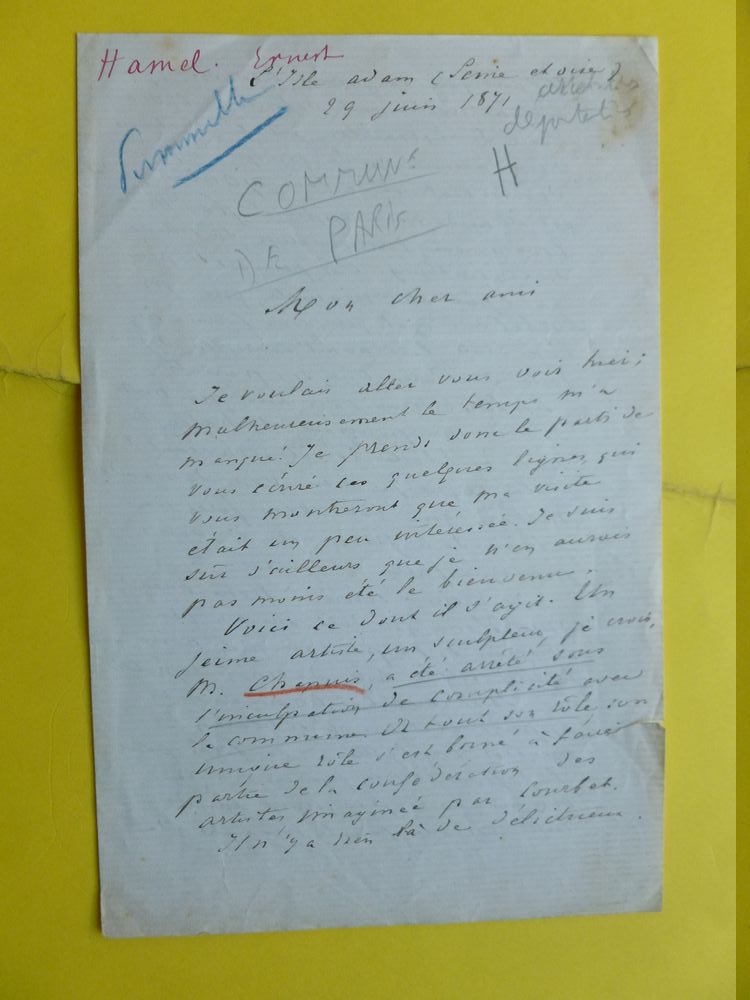 Hamel. Ernest
L'Isle adam (Seine et oise)
29 juin 1871
Personnelle
déportés
H
COMMUNE
DE PARIS
Mon cher ami
Je voulais aller vous voir hier;
malheureusement le temps m'a
manqué. Je prends donc le parti de
vous écrire ces quelques lignes, qui
vous montreront que ma visite
était un peu intéressée. Je suis
sûr d'ailleurs que je n'en aurois
pas moins été le bienvenu.
Voici ce dont il s'agit. Un
jeune artiste, un sculpteur, je crois,
M. a été arrêté sous
l'inculpation de complicité avec
la commune. Et tout son rôle son
unique rôle s'est borné à faire
partie de la confédération des
artistes imaginée par Courbet.
Il n'y a rien là de délictueux.